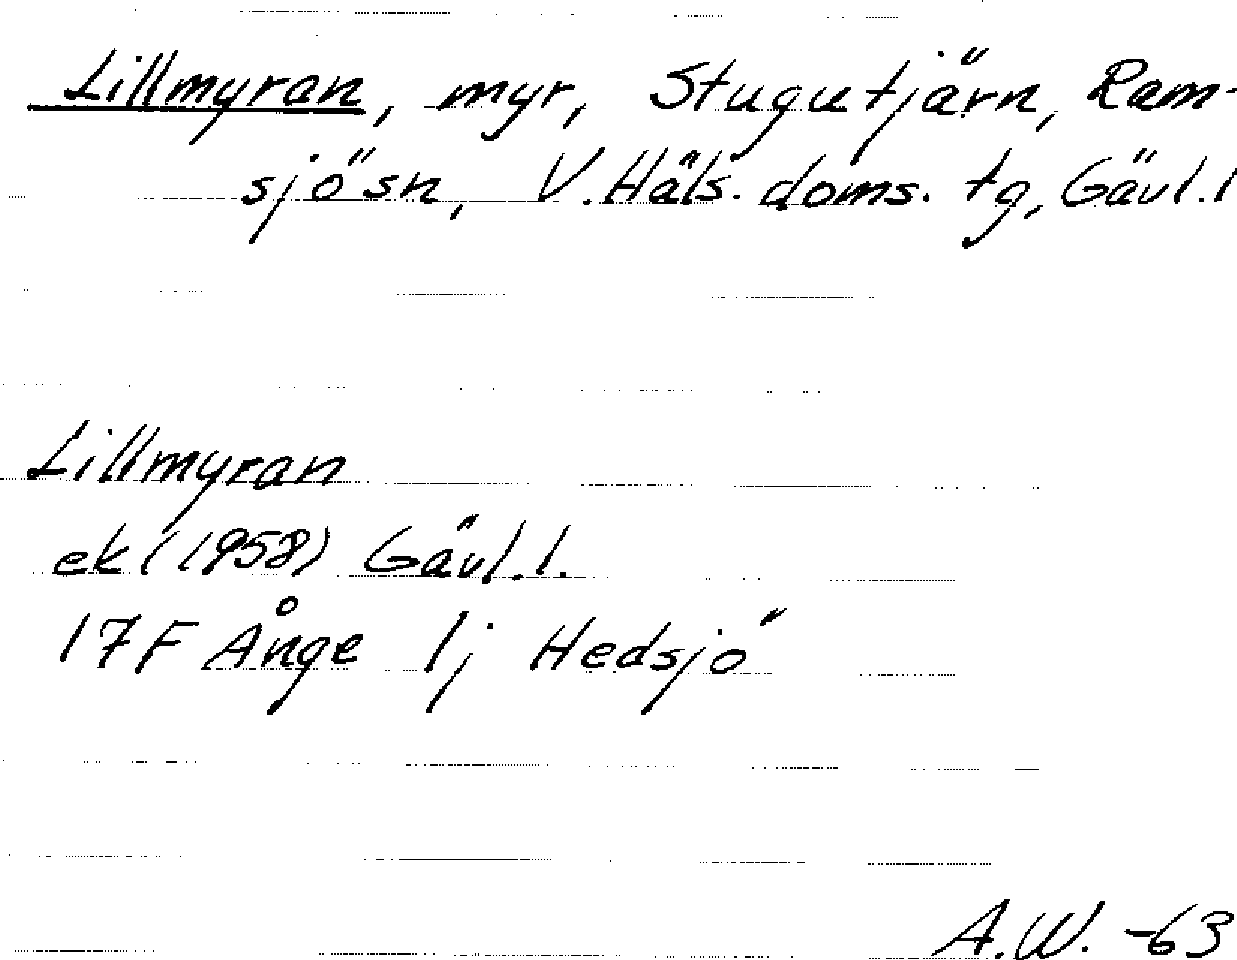 Lillmyran, myr, Stugutjärn, Ram-
sjösn, V. Häls. doms. tg, Gävl. l
Lillmyran
ek (1958) Gävl. l.
17F Ånge 1j Hedsjö
A.W. -63